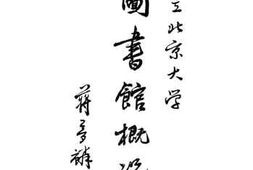 立北京大学
圖書館概况
蔣夢麟